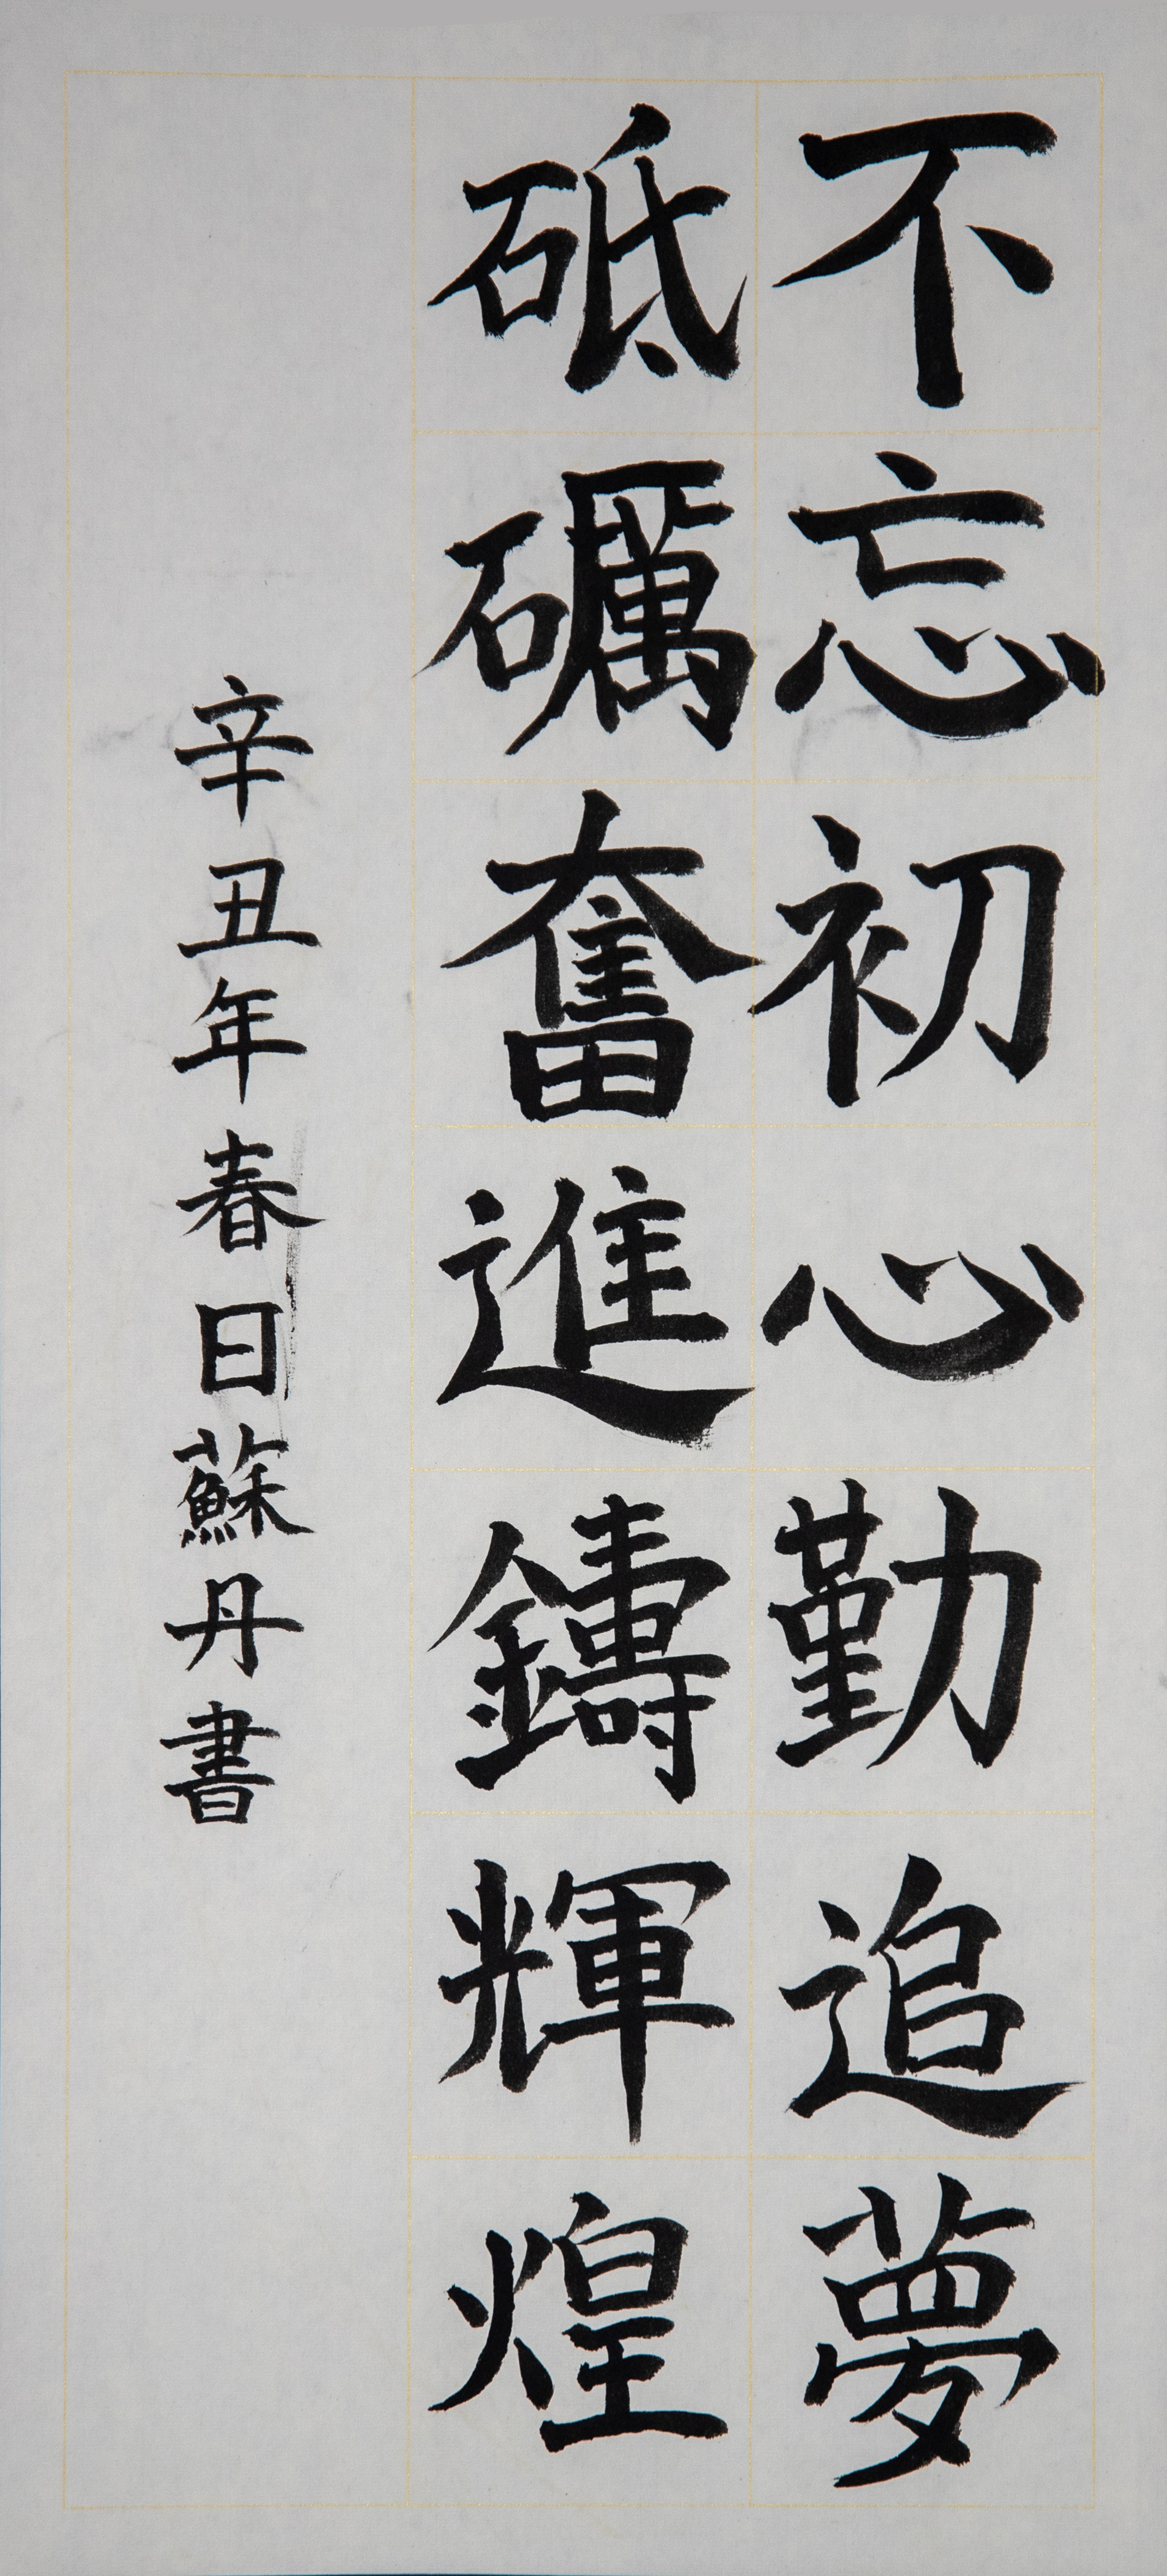 不忘初心勤追夢
砥礪奮進鑄輝煌
辛丑年春日蘇丹書